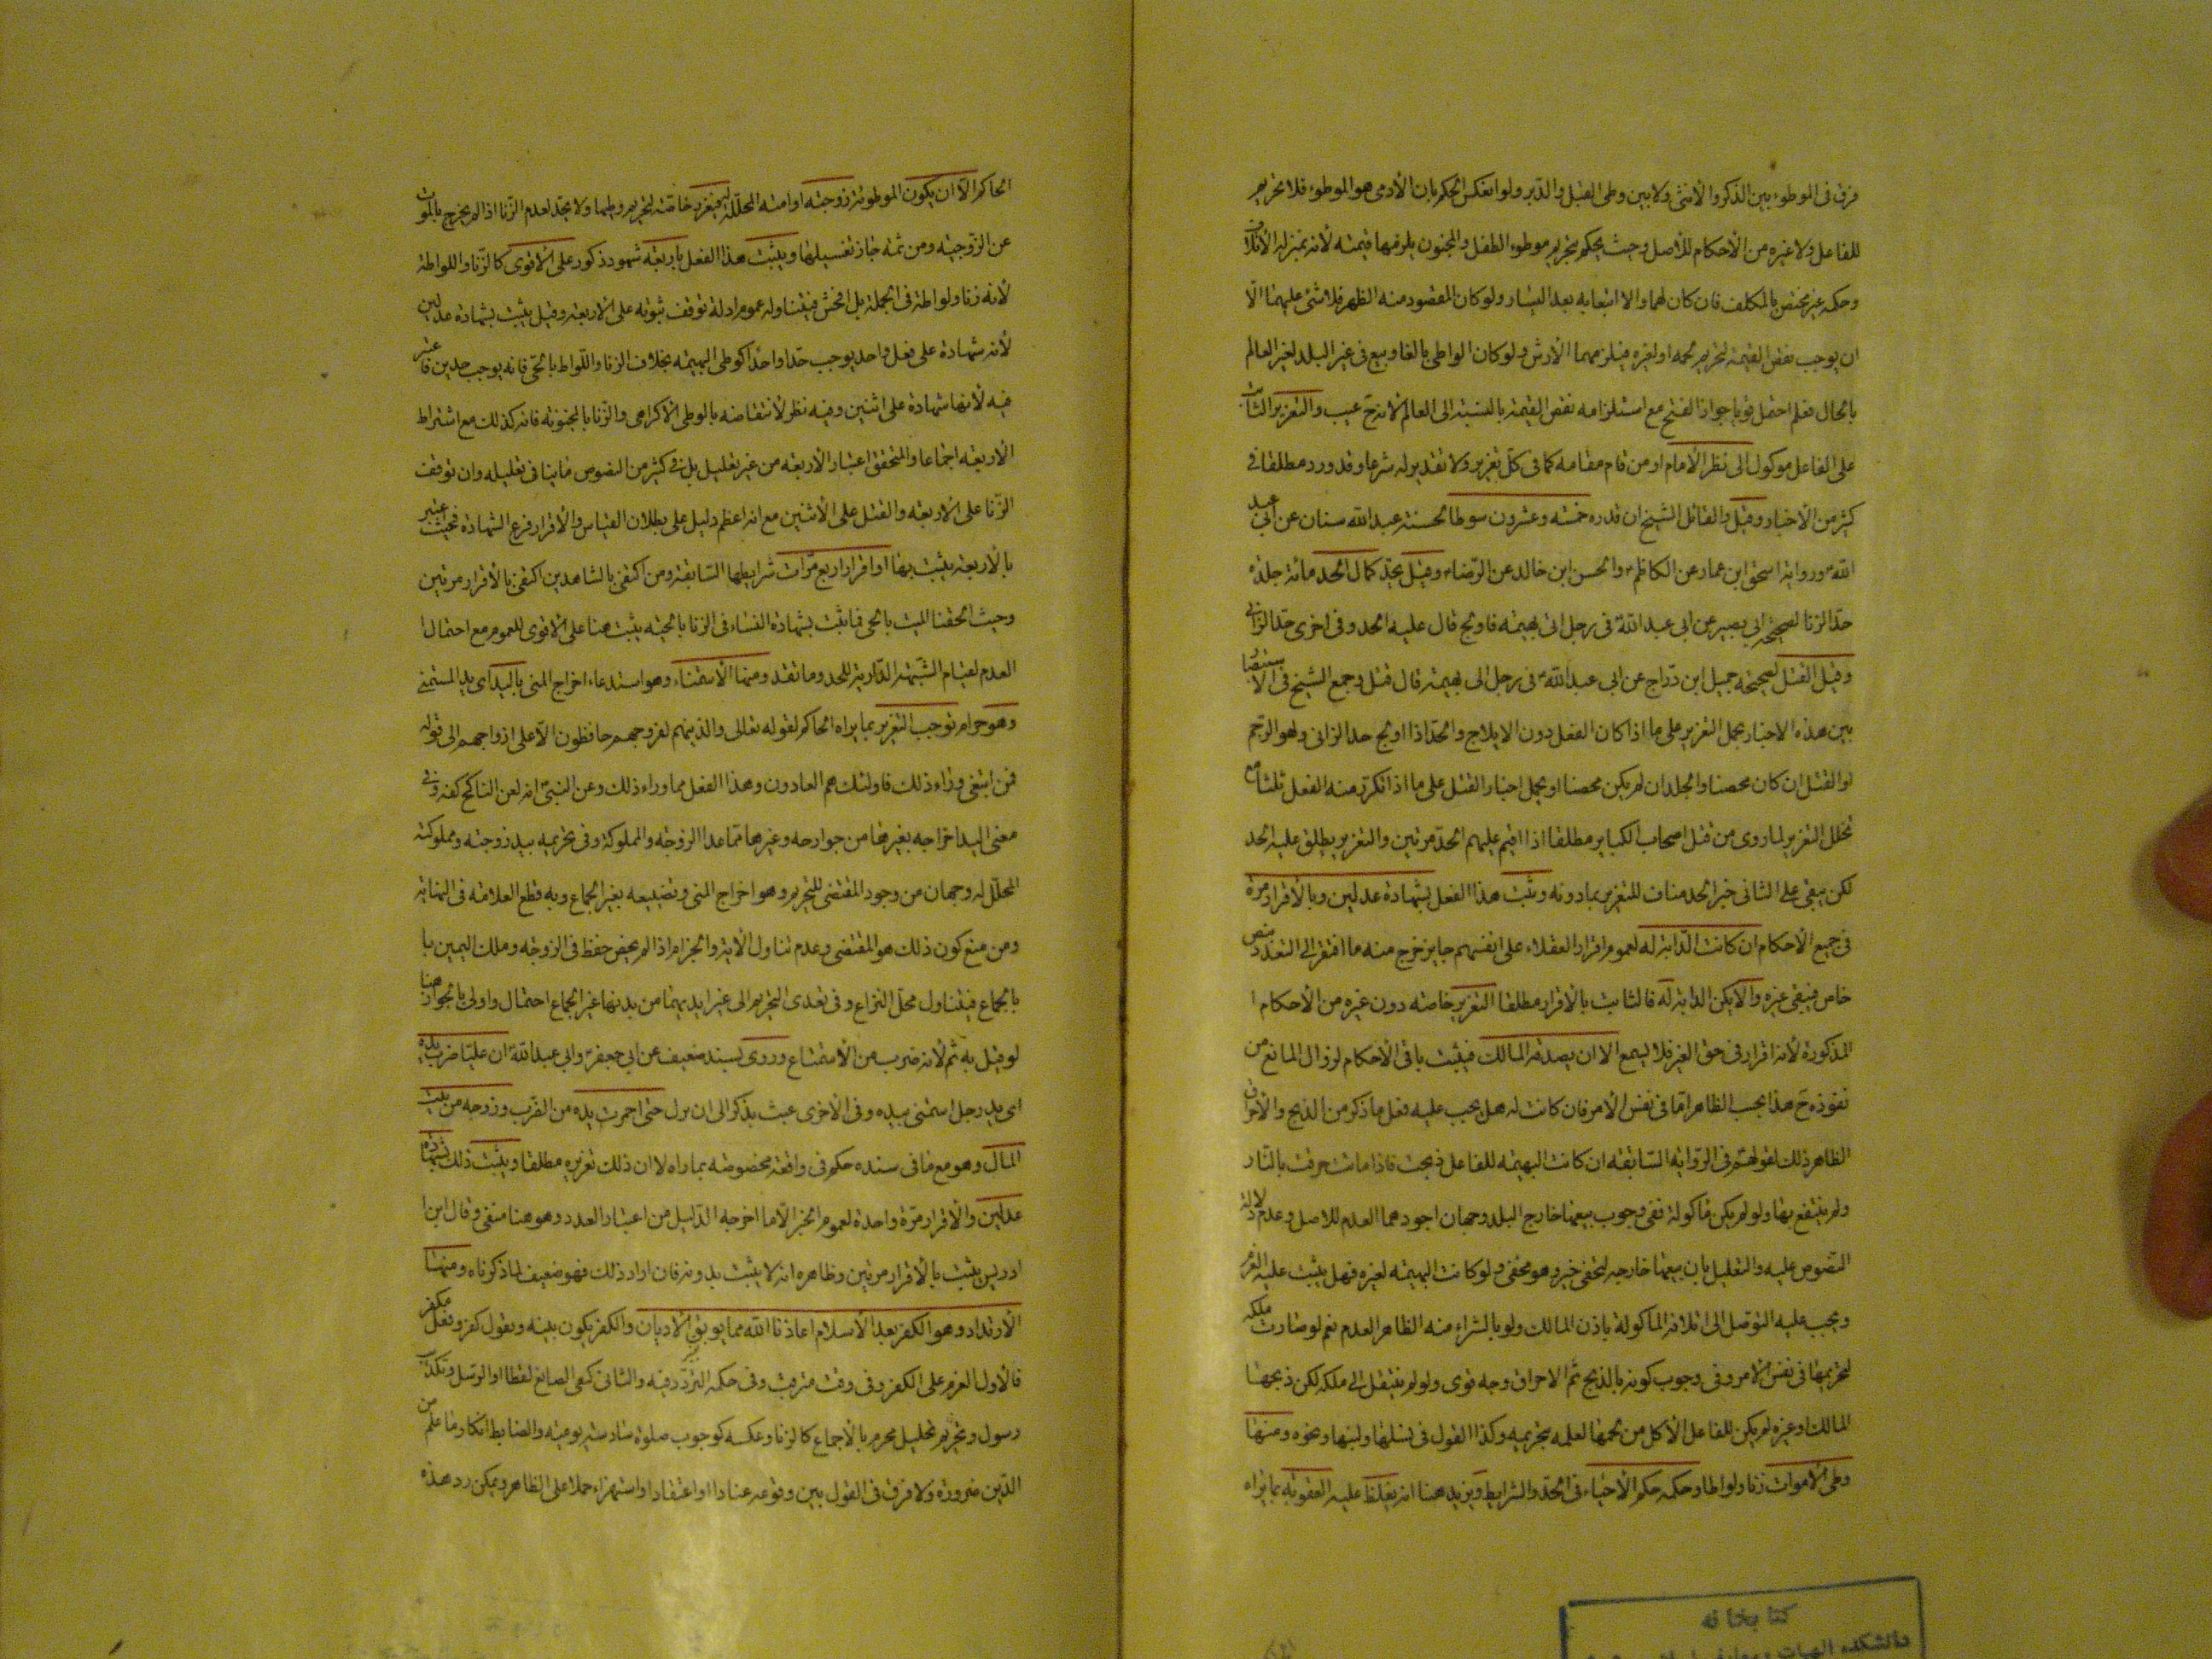 فرق فى الموطوء بين الذكر والأنثى ولا بين وطى القبل والدبر ولو انعكس الحكم بان كان الآدمى هو الموطوء فلا تحريم
للفاعل ولا غيره من الأحكام للأصل وحيث يحكم بتحريم موطوء الطفل والمجنون يلزمهما قيمته لأنه بمنزلة الأتلاف
وحكمه غير مختص بالمكلف فان كان لهما والا اتبعا به بعد اليسار ولو كان المقصود منه الظهر فلا شئ عليهما الا
ان يوجب نقص القيمة لتحريم لحمه او لغيره فيلزمهما الأرش ولو كان الواطى بالغا وبيع فى غير البلد لغير العالم
بالحال فعلم احتمل قويا جواز الفسخ مع استلزامه نقص القيمة بالنسبة الى العالم لأنه ح عيب والتعزير الثابت
على الفاعل موكول الى نظر الأمام او من قام مقامه كما فى كل تعزير ولا تقدير له شرعا وقد ورد مطلقا فى
كثير من الأخبار وقيل والقائل الشيخ ان قدره خمسة وعشرون سوطا لحسنة عبد الله سنان عن أبى عبد
الله ورواية اسحق ابن عمار عن الكاظم والحسن ابن خالد عن الرضا وقيل يحد كمال الحد مائة جلدة
حد الزنا لصحيحة ابى بصير عن ابى عبد الله فى رجل اتى بهيمة فاولج قال عليه الحد وفى اخرى حد الزانى
وقيل القتل لصحيحة جميل ابن دراج عن ابى عبد الله فى رجل اتى بهيمة قال قتل وجمع الشيخ فى الاستبصار
بين هذه الاخبار بحمل التعزير على ما اذا كان الفعل دون الايلاج والحد اذا اولج حد الزانى وهو الرجم
او القتل ان كان محصنا والجلد ان لم يكن محصنا او بحمل اخبار القتل على ما اذا تكرر منه الفعل ثلثا مع
تخلل التعزير لما روى من قتل اصحاب الكباير مطلقا اذا اقيم عليهم الحد مرتين والتعزير يطلق عليه الحد
لكن يبقى على الثانى خبر الحد مناف للتعزير بما دونه ويثبت هذا الفعل بشهادة عدلين وبالأقرار مرة
فى جميع الأحكام ان كانت الدابة له لعموم اقرار العقلاء على انفسهم جايز خرج منه ما افتقر الى التعدد بنص
خاص فيبقى غيره والا يكن الدابة له فالثابت بالأقرار مطلقا التعزير خاصة دون غيره من الأحكام ا
المذكورة لأنه اقرار فى حق الغير فلا يسمع الا ان يصدقه المالك فيثبت باقى الأحكام لزوال المانع من
نفوذه ح هذا بحسب الظاهر اما فى نفس الأمر فان كانت له هل يجب عليه فعل ما ذكر من الذبح والأحراق
الظاهر ذلك لقولهم فى الرواية السابقة ان كانت البهيمة للفاعل ذبحت فاذا ماتت حرقت بالنار
ولم ينتفع بها ولو لم يكن مأكولة ففى وجوب بيعها خارج البلد وجهان اجودهما العدم للأصل وعدم دلالة
النصوص عليه والتعليل بان بيعها خارجه ليخفى خبره وهو مخفى ولو كانت البهيمة لغيره فهل يثبت عليه الغرم
ويجب عليه التوصل الى اتلاف المأكولة باذن المالك ولو بالشراء منه الظاهر العدم نعم لو صارت ملكه
لتحريمها فى نفس الأمر وفى وجوب كونه بالذبح ثم الاحراق وجه قوى ولو لم ينتقل الى ملكه لكن ذبحها
المالك او غيره لم يكن للفاعل الأكل من لحمها لعلمه بتحريمه وكذا القول فى نسلها ولبنها ونحوه ومنها
وطى الأموات زنا ولواطا وحكمه حكم الأحياء فى الحد والشرايط ويزيد هنا انه يغلظ عليه العقوبة بما يراه
الحاكم الا ان يكون الموطوئة زوجته او امته المحللة فيعزر خاصة لتحريم وطيها ولا يحد لعدم الزنا اذ لم يخرج بالموت
عن الزوجية ومن ثمة جاز تغسيلها ويثبت هذا الفعل باربعة شهود ذكور على الاقوى كالزنا واللواطة
لأنه زنا ولواطة فى الجملة بل افحش فيتناوله عموم ادلة توقف ثبوته على الاربعة وقيل يثبت بشهادة عدلين
لأنه شهادة على فعل واحد يوجب حدا واحدا كوطى البهيمة بخلاف الزنا واللواط بالحى فانه يوجب حدين فاعتبر
فيه لأنها شهادة على اثنين وفيه نظر لأنتقاضه بالوطى الأكراهى والزنا بالمجنونة فانه كذلك مع اشتراط
الأربعة اجماعا والمتحقق اعتبار الأربعة من غير تعليل بل فى كثير من النصوص ما ينافى تعليله وان توقفت
الزنا على الأربعة والقتل على الأثنين مع انه اعظم دليل على بطلان القياس والأقرار فرع الشهادة فحيث اعتبر
بالأربعة يثبت بها او اقرار اربع مرات شرايطها السابقة ومن اكتفى بالشاهدين اكتفى بالأقرار مرتين
وحيث الحقنا الميت بالحى فما يثبت بشهادة النساء فى الزنا بالحية يثبت هنا على الاقوى للعموم مع احتمال ا
العدم لقيام الشبهة الدارئة للحد وما تقدم ومنها الأستمناء وهو استدعاء اخراج المنى باليد اى يد المستمنى
وهو حرام توجب التعزير بما يراه الحاكم لقوله تعالى والذينهم لفروجهم حافظون الا على ازواجهم الى قوله
فمن ابتغى وراء ذلك فاولئك هم العادون وهذا الفعل مما وراء ذلك وعن النبى انه لعن الناكح كفه وفى
معنى اليد اخراجه بغيرها من جوارحه وغيرها مما عدا الزوجة والمملوكة وفى تحريمه بيد زوجته ومملوكته
المحلل له وجهان من وجود المقتضى للتحريم وهو اخراج المنى وتضييعه بغير الجماع وبه قطع العلامة فى النهاية
ومن منع كون ذلك هو المقتضى وعدم تناول الآية والخبر ام اذ لم يخص حفظ فى الزوجة وملك اليمين با
بالجماع فيتناول محل النزاع وفى تعدى التحريم الى غير ايديهما من بدنهما غير الجماع احتمال واولى بالجواز هنا
لو قيل به ثم لأنه ضرب من الأستمتاع وروى بسند ضعيف عن ابى جعفر وابى عبد الله ان عليا ضرب يده
اى يد رجل استمنى بيده وفى الأخرى عبث بذكره الى ان نزل حتى احمرت يده من الضرب وزوجه من بيت
المال وهو مع ما فى سنده حكم فى واقعة مخصوصة بما راه لا ان ذلك تعزيره مطلقا ويثبت ذلك بشهادة
عدلين والأقرار مرة واحدة لعموم الخبر الأما اخرجه الدليل من اعتبار العدد وهو هنا منفى وقال ابن ا
ادريس يثبت بالأقرار مرتين وظاهره انه لا يثبت بدونه فان اراد ذلك فهو ضعيف لما ذكرناه ومنها
الأرتداد وهو الكفر بعد الأسلام اعاذنا الله مما يوبق الأديان والكفر يكون بنية وبقول كفر وفعل مكفر
فالأول العزم على الكفر وفى وقت مترقب وفى حكمه التردد فيه والثانى كنفى الصانع لفظا او الرسل وتكذيب
رسول وتحريم تحليل محرم بالأجماع كالزنا وعكسه كوجوب صلوة سادسة يومية والضابط انكار ما علم من
الدين ضرورة ولا فرق فى القول بين وقوعه عنادا او اعتقادا او استهزاء حملا على الظاهر ويمكن رد هذه
كتابخانه
دانشكده الهيات و معارف اسلامى